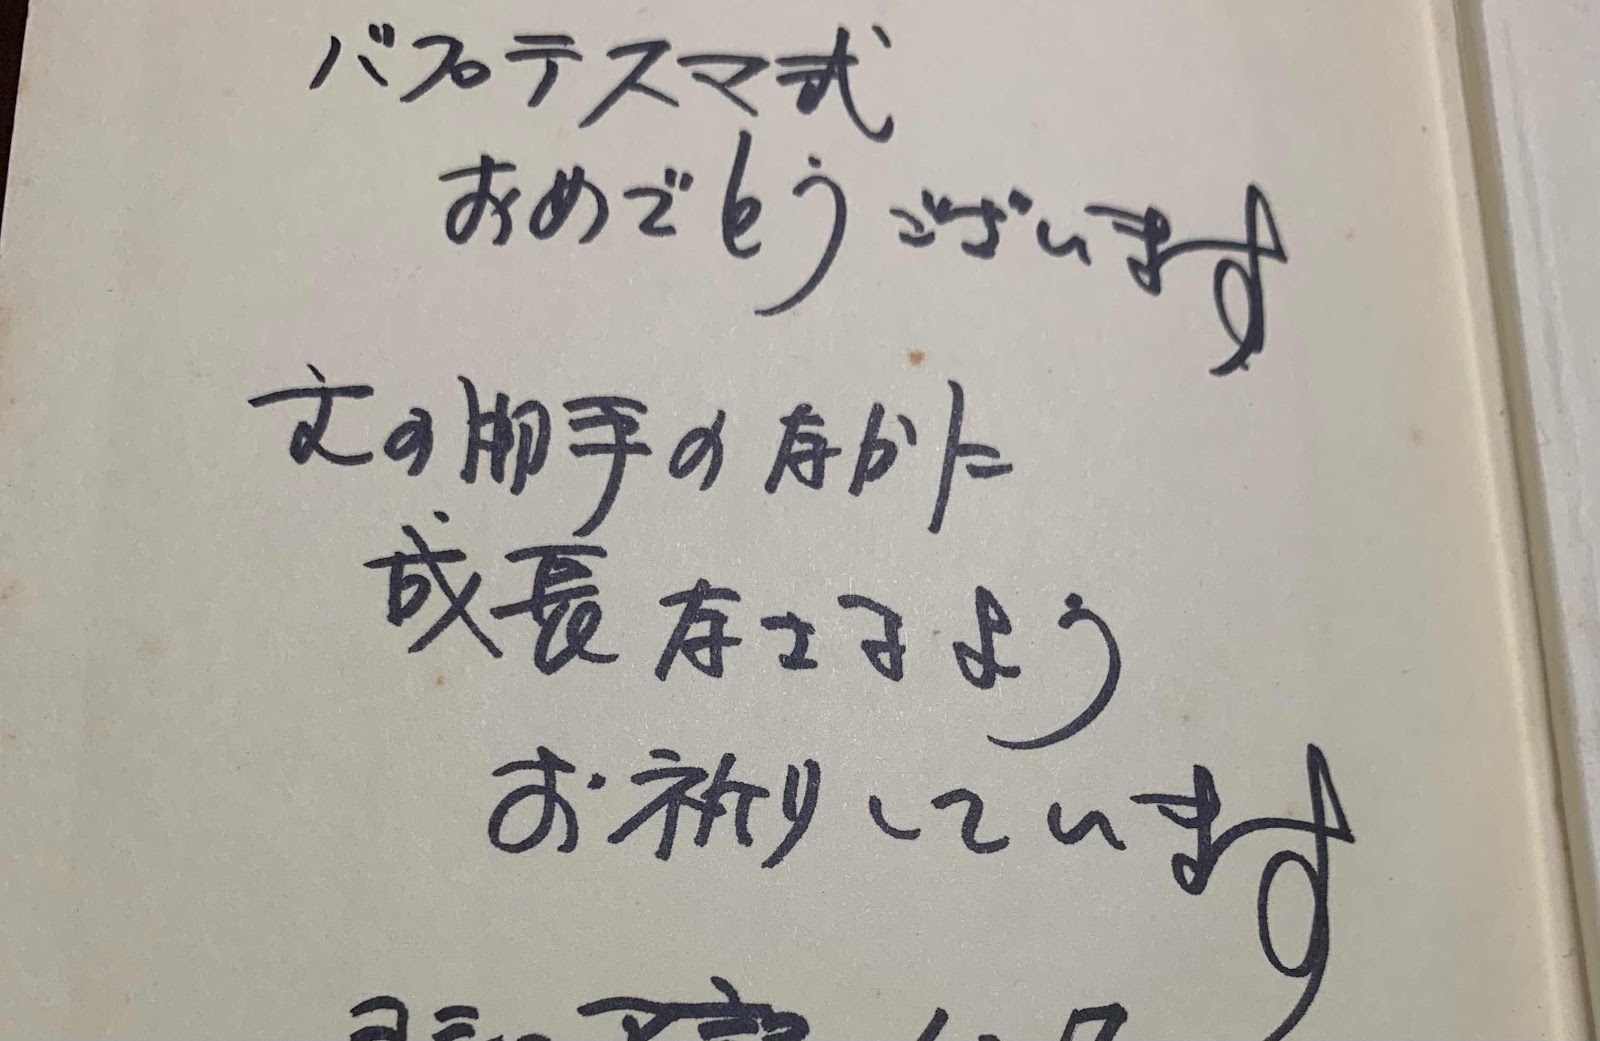 バプテスマ式
おめでとうございます
主の御手のなかに
成長なさるよう
お祈りしています